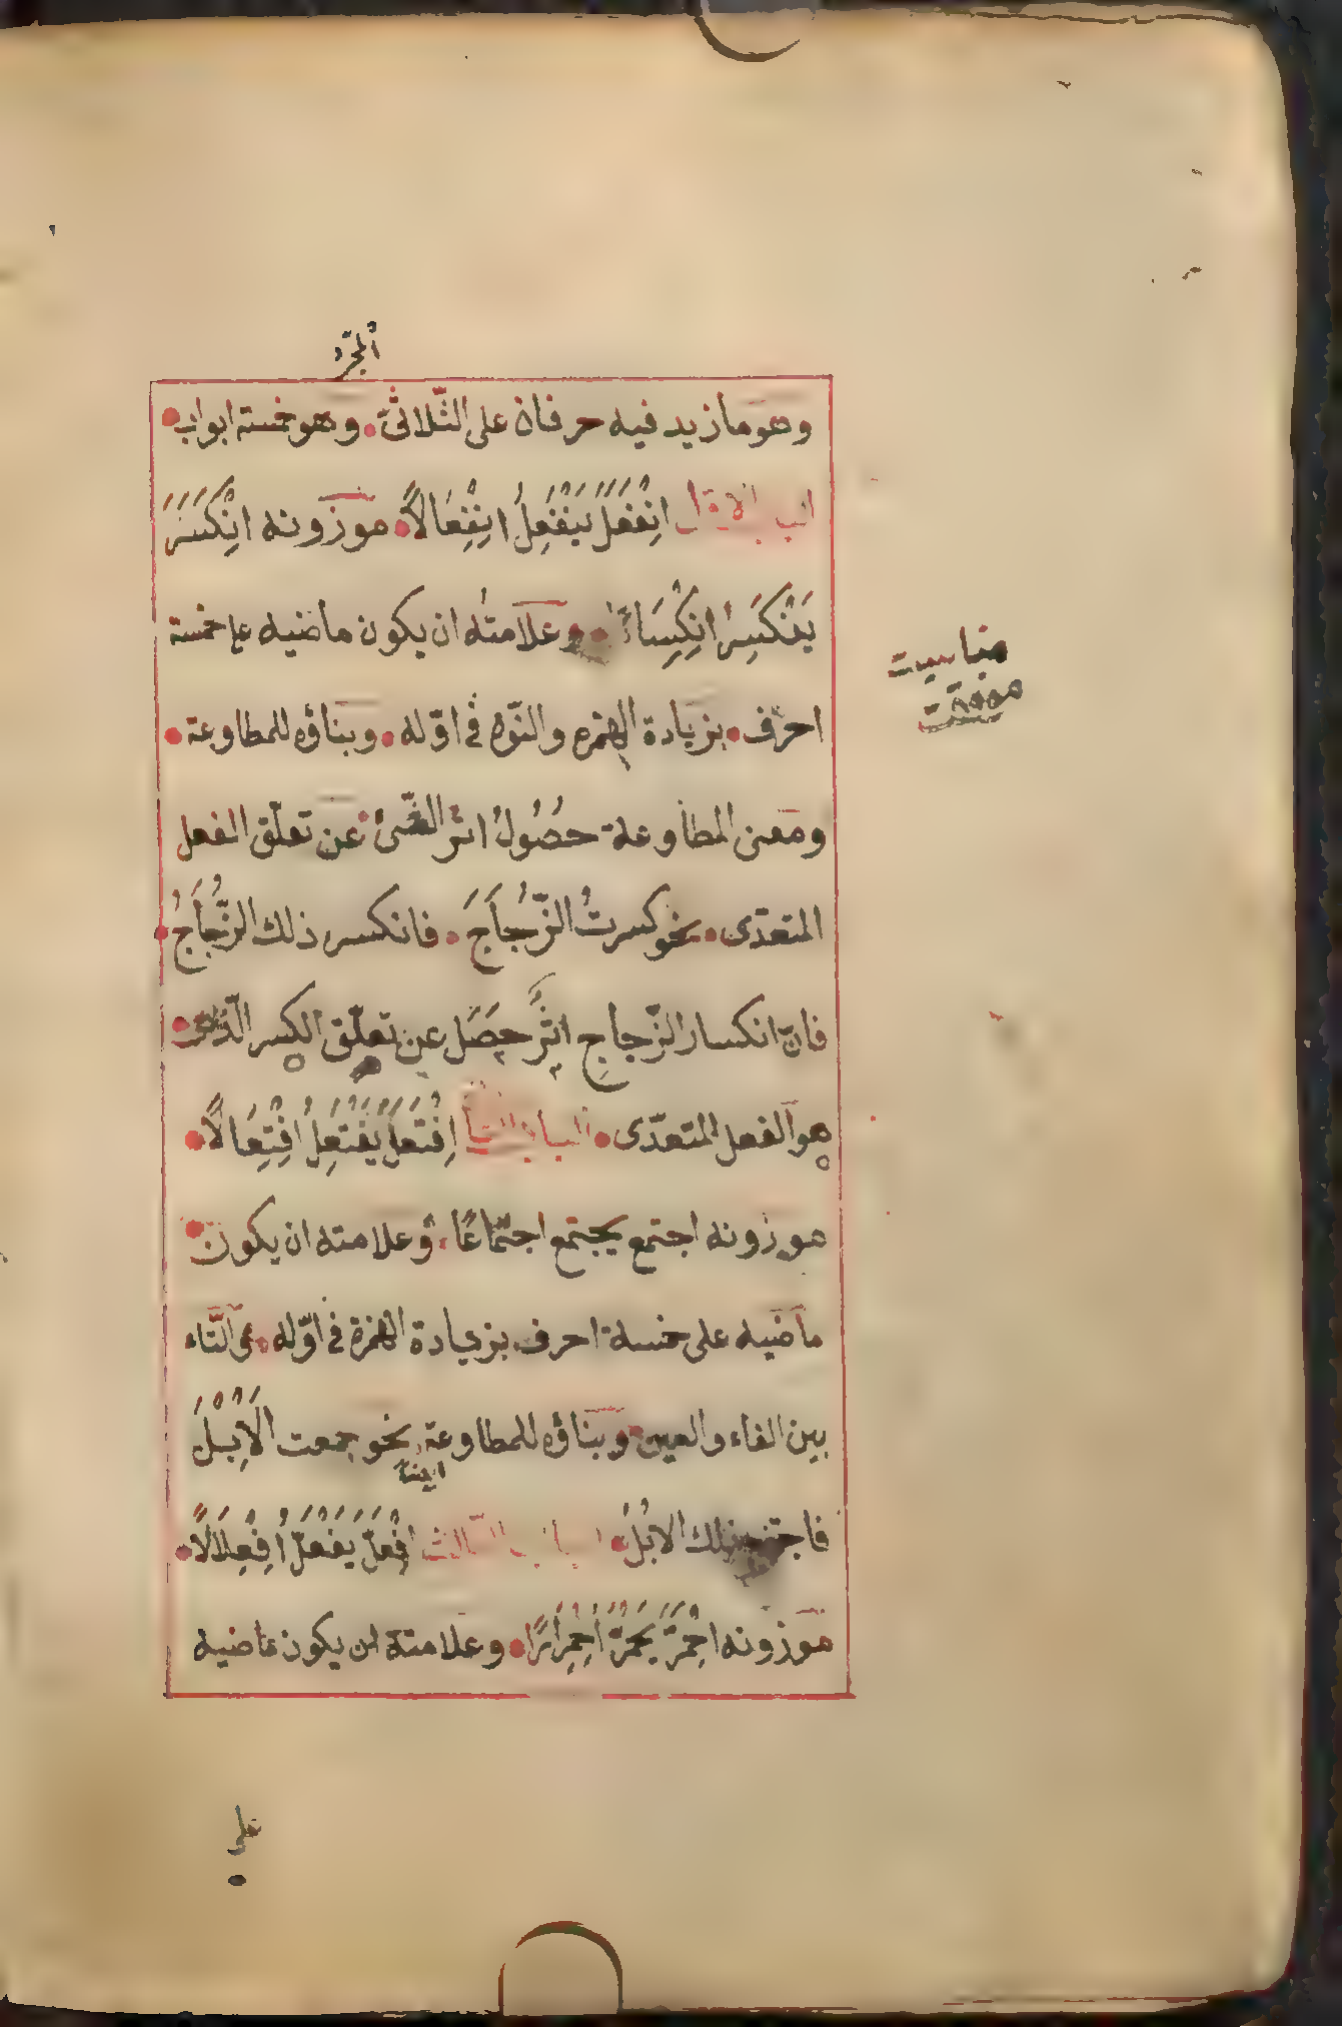 المجرّد
وهو ما زيد فيه حرفان على الثّلاثىّ وهو خمسة ابواب
الباب الاوّل اِنْفَعَلَ يَنْفَعِلُ اِنْفِعَالًا موزونه اِنْكَسَرَ
يَنْكَسِرُ اِنْكِسَارًا وعلامته ان يكون ماضيه على خمسة
احرف بزيادة الهمزة والنّون فى اوّله وبناؤه للمطاوعة
ومعنى المطاوعة حُصُولُ اثر الشّىء عن تعلّق الفعل
المتعدّى نحو كسرتُ الزُّجاجَ فانكسر ذلك الزُّجاجُ
فانّ انكسار الزّجاجِ اثرٌ حصَلَ عن تعلّق الكسر الّذى
هو الفعل المتعدّى الباب الثانى اِفْتَعَلَ يَفْتَعِلُ اِفْتِعَالًا
موزونه اجتمع يجتمع اجتماعًا وعلامته ان يكون
ماضيه على خمسة احرف بزيادة الهمزة فى اوّله والتّاء
بين الفاء والعين وبناؤه للمطاوعة نحو جمعت الْاِبِلَ
ايضًا
فاجتمع ذلك الابلُ الباب الثّالث اِفْعَلَّ يَفْعَلُّ اِفْعِلَالًا
موزونه اِحْمَرَّ يَحْمَرُّ اِحْمِرَارًا وعلامته ان يكون ماضيه
على